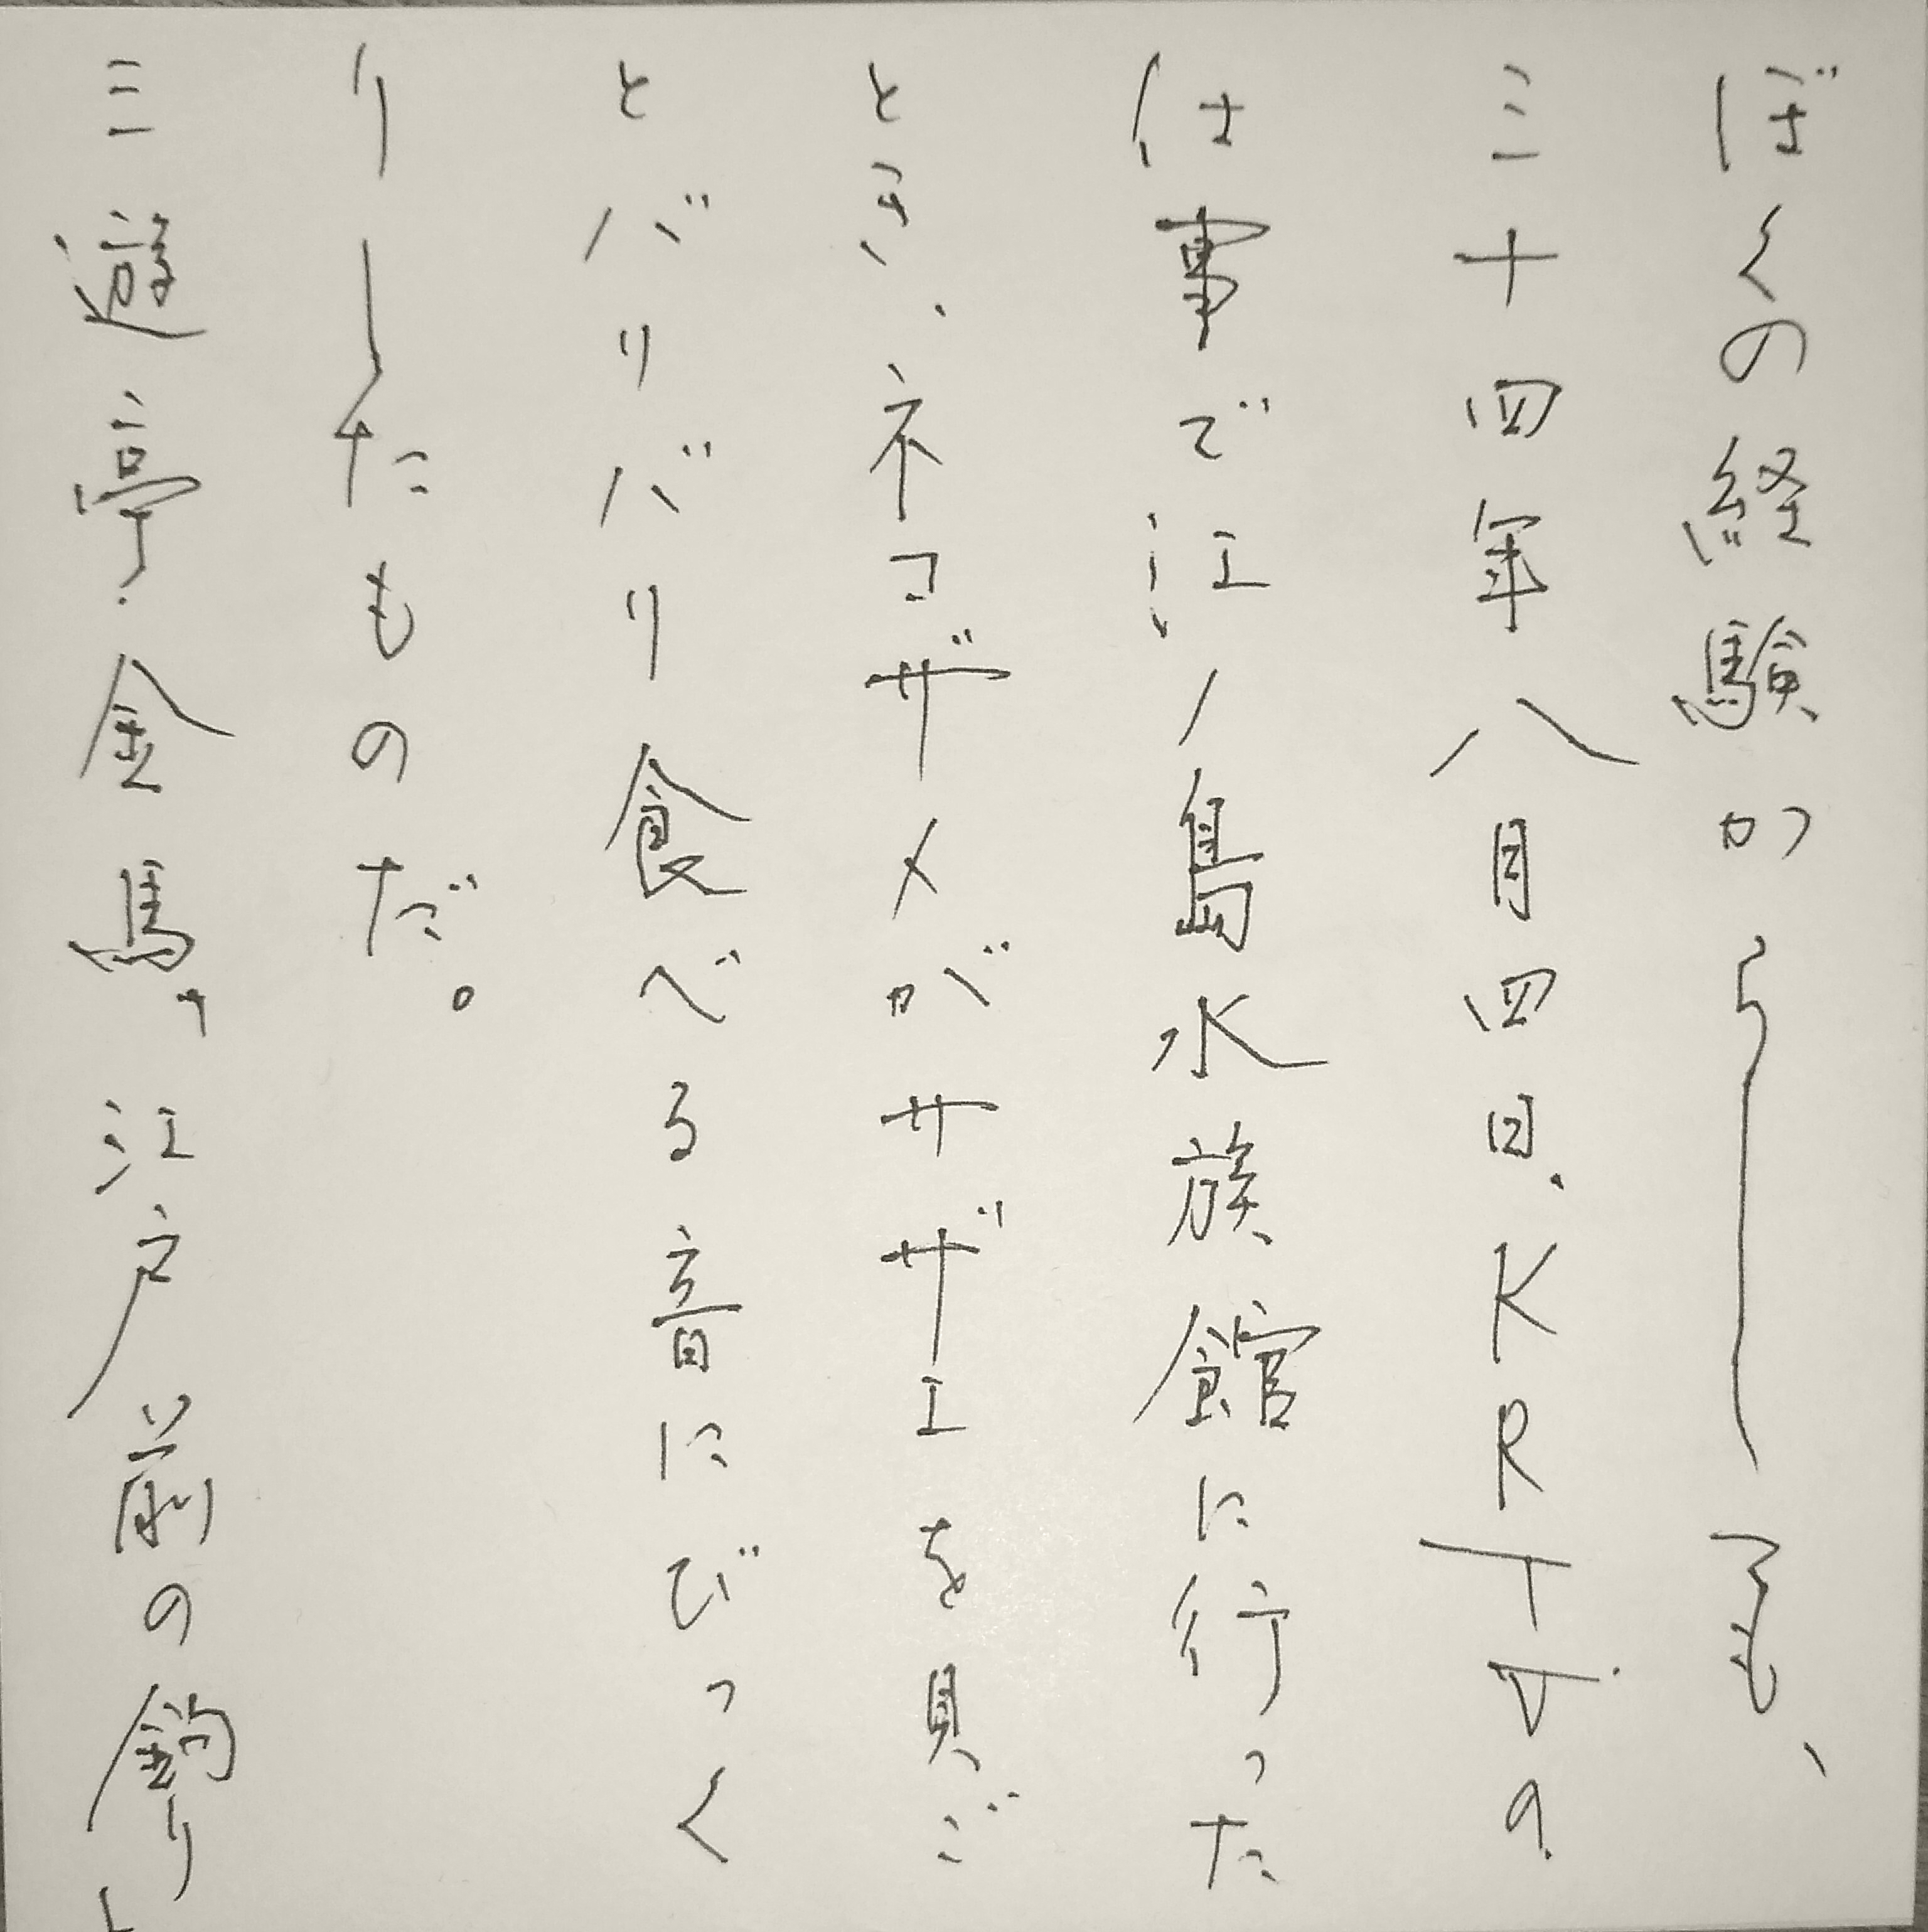 ぼくの経験からしても、
三十四年八月四日、KRTVの
仕事で江ノ島水族館に行った
とき、ネコザメがサザエを貝ご
とバリバリ食べる音にびっく
りしたものだ。
三遊亭金馬，江戸前の釣りよ